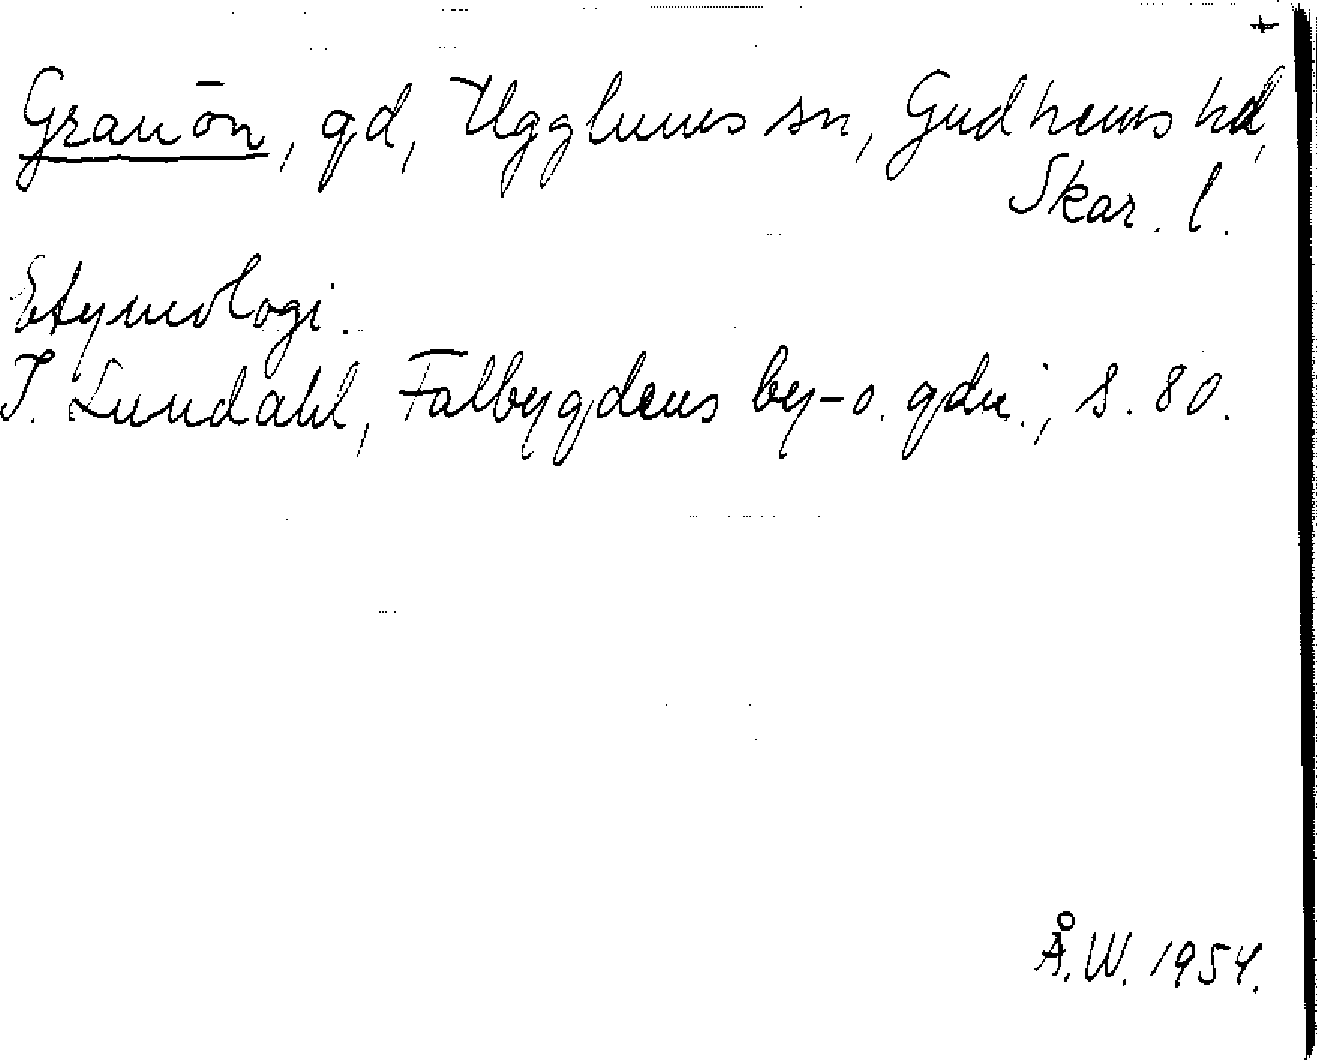 +
Granön, gd, Ugglums sn, Gudhems hd,
Skar. l.
Etymologi.
I. Lundahl, Falbygdens by- o. gdn., s. 80.
Å.W. 1954.